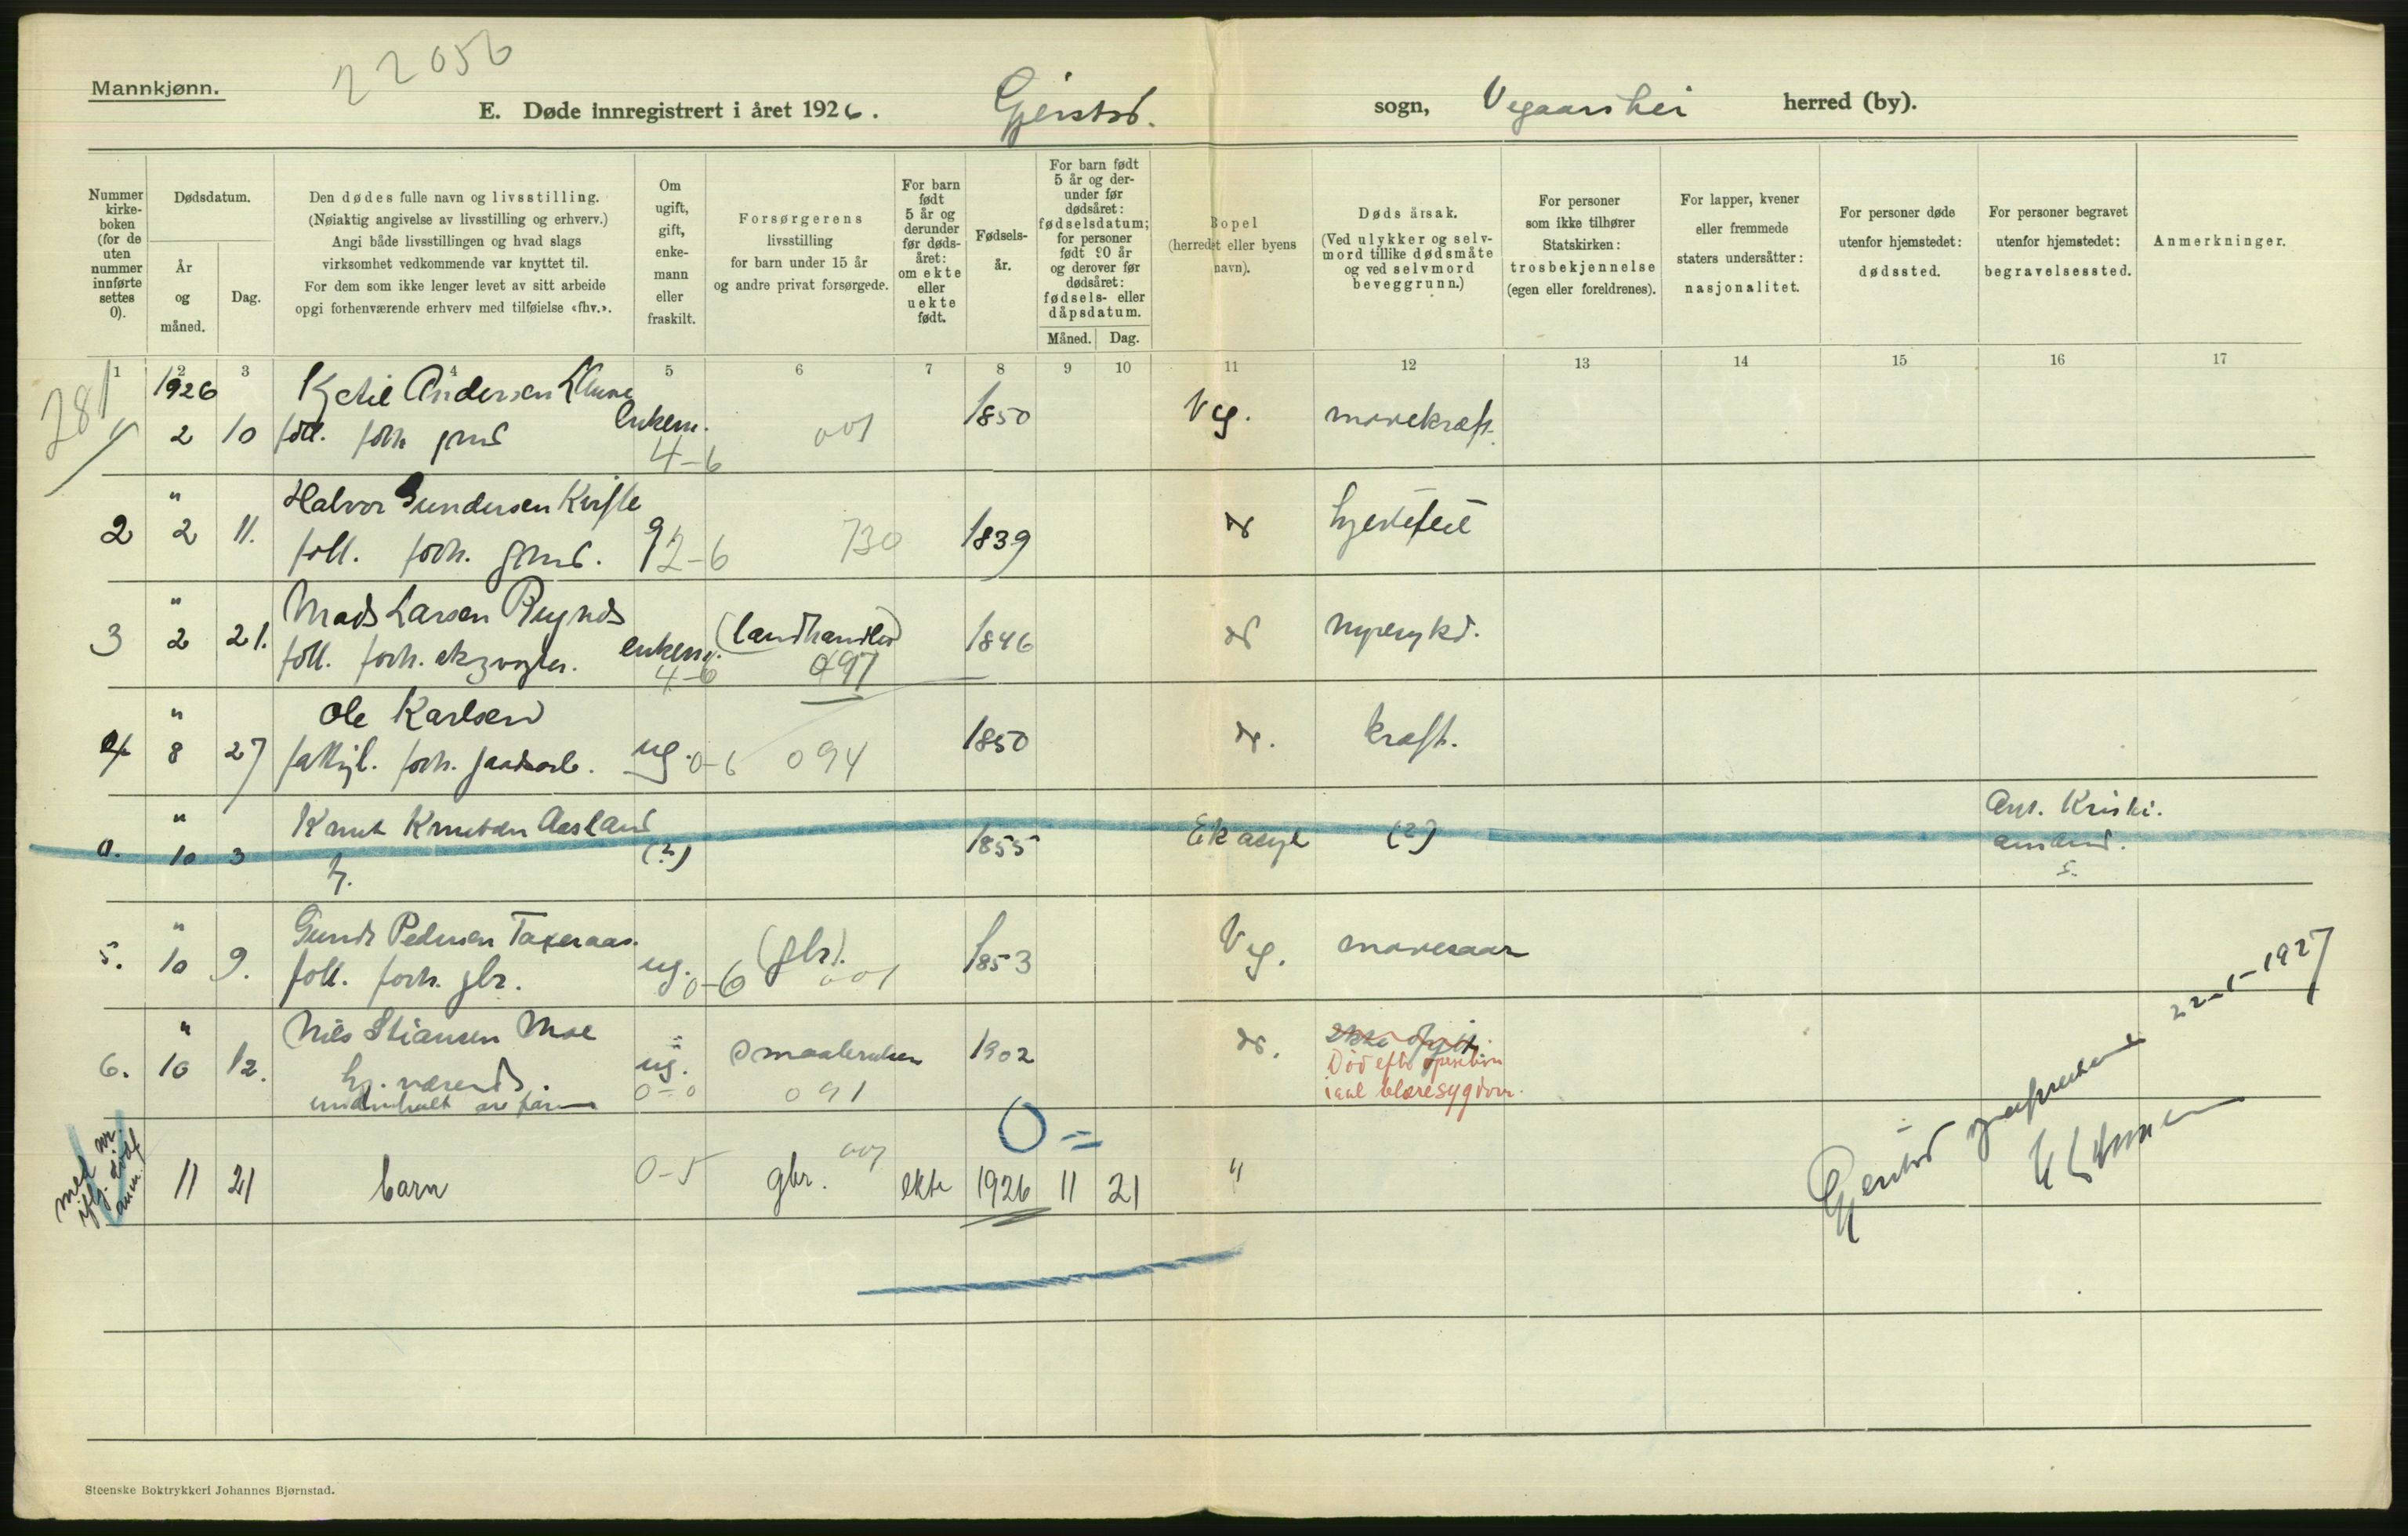 22056
Mannkjønn.
E. Døde innregistrert i året 1926. Gjerstad. sogn, Vegaarshei herred (by).
Nummer
kirke-
boken
(for de
uten
nummer
innførte
settes
0).
Dødsdatum.
År
og
måned.
Dag.
Den dødes fulle navn og livsstilling.
(Nøiaktig angivelse av livsstilling og erhverv.)
Angi både livsstillingen og hvad slags
virksomhet vedkommende var knyttet til.
For dem som ikke lenger levet av sitt arbeide
opgi forhenværende erhverv med tilføielse «fhv.».
Om
ugift,
gift,
enke-
mann
eller
fraskilt.
Forsørgerens
livsstilling
for barn under 15 år
og andre privat forsørgede.
For barn
født
5 år og
derunder
før døds-
året:
om ekte
eller
uekte
født.
Fødsels-
år.
For barn født
5 år og der-
under før
dødsåret:
fødselsdatum;
for personer
født 90 år
og derover før
dødsåret:
fødsels- eller
dåpsdatum.
Måned. Dag.
Bopel
(herredet eller byens
navn).
Døds årsak.
(Ved ulykker og selv-
mord tillike dødsmåte
og ved selvmord
beveggrunn.)
For personer
som ikke tilhører
Statskirken:
trosbekjennelse
(egen eller foreldrenes).
For lapper, kvener
eller fremmede
staters undersåtter:
nasjonalitet.
For personer døde
utenfor hjemstedet:
dødssted.
For personer begravet
utenfor hjemstedet:
begravelsessted.
Anmerkninger.
1 2 3 4 5 6 7 8 9 10 11 12 13 14 15 16 17
281
1926 Kjetil Andersen
2 10 foll. forh. grds enkem. 001 1850 Veg. mavekræft.
4-6
" Halvor Gundersen Kvifte
2 2 11. foll. forh. grds. g 2-6 730 1839 do hjertefeil
" Mads Larsen
3 2 21. foll. forh. enkem. (landhandler) 1846 do nyresykd.
4-6 097
" Ole Karlsen
4 8 27 forh. ug. 0-6 094 1850 do. kræft.
" Knut Knutsen Aasland Ant. Kristi.
0. 10 3 (?) 1855 Ek asyl (?) amand.
h. 5.
" Gunde Pedersen Taxeraas.
5. 10 9. foll. forh. gbr. ug. 0-6 (gbr). 001 1853 Veg. mavesaar
" Nils Stiansen Moe
6. 10 12. hj. værende. ug. 1902 do. ikke
underholdt av faren 0-0 091 Død efter operation
i en blæresygdom.
0 =
med nr.
11 21 barn 0-5 gbr. 001 ekte 1926 11 21 "
Gjerstad sogneprestembede 22-1-1927
Steenske Boktrykkeri Johannes Bjørnstad.